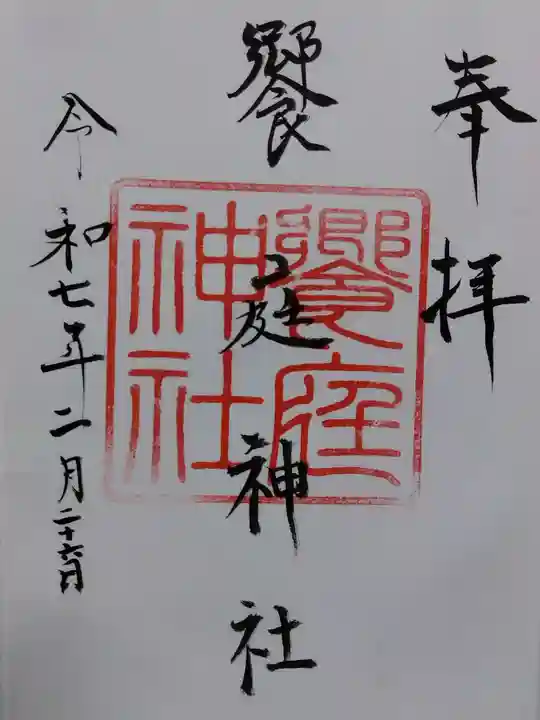 奉拝
饗庭神社
饗庭神社
令和七年二月二十六日